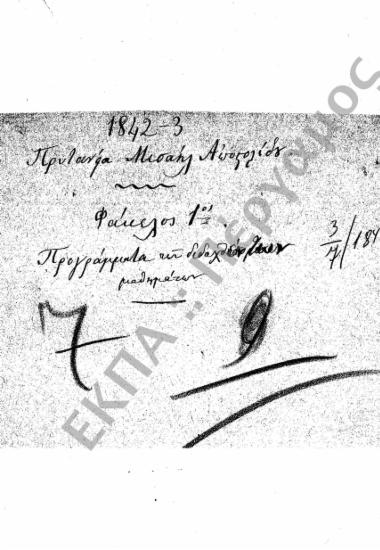 1842-3
Πρυτανεία Μισαήλ Αποστολίδου.
Φάκελος 1ος.
Προγράμματα των διδαχθέντων
μαθημάτων
3/7/184
7 9
ΕΚΠΑ :: Πέργαμος